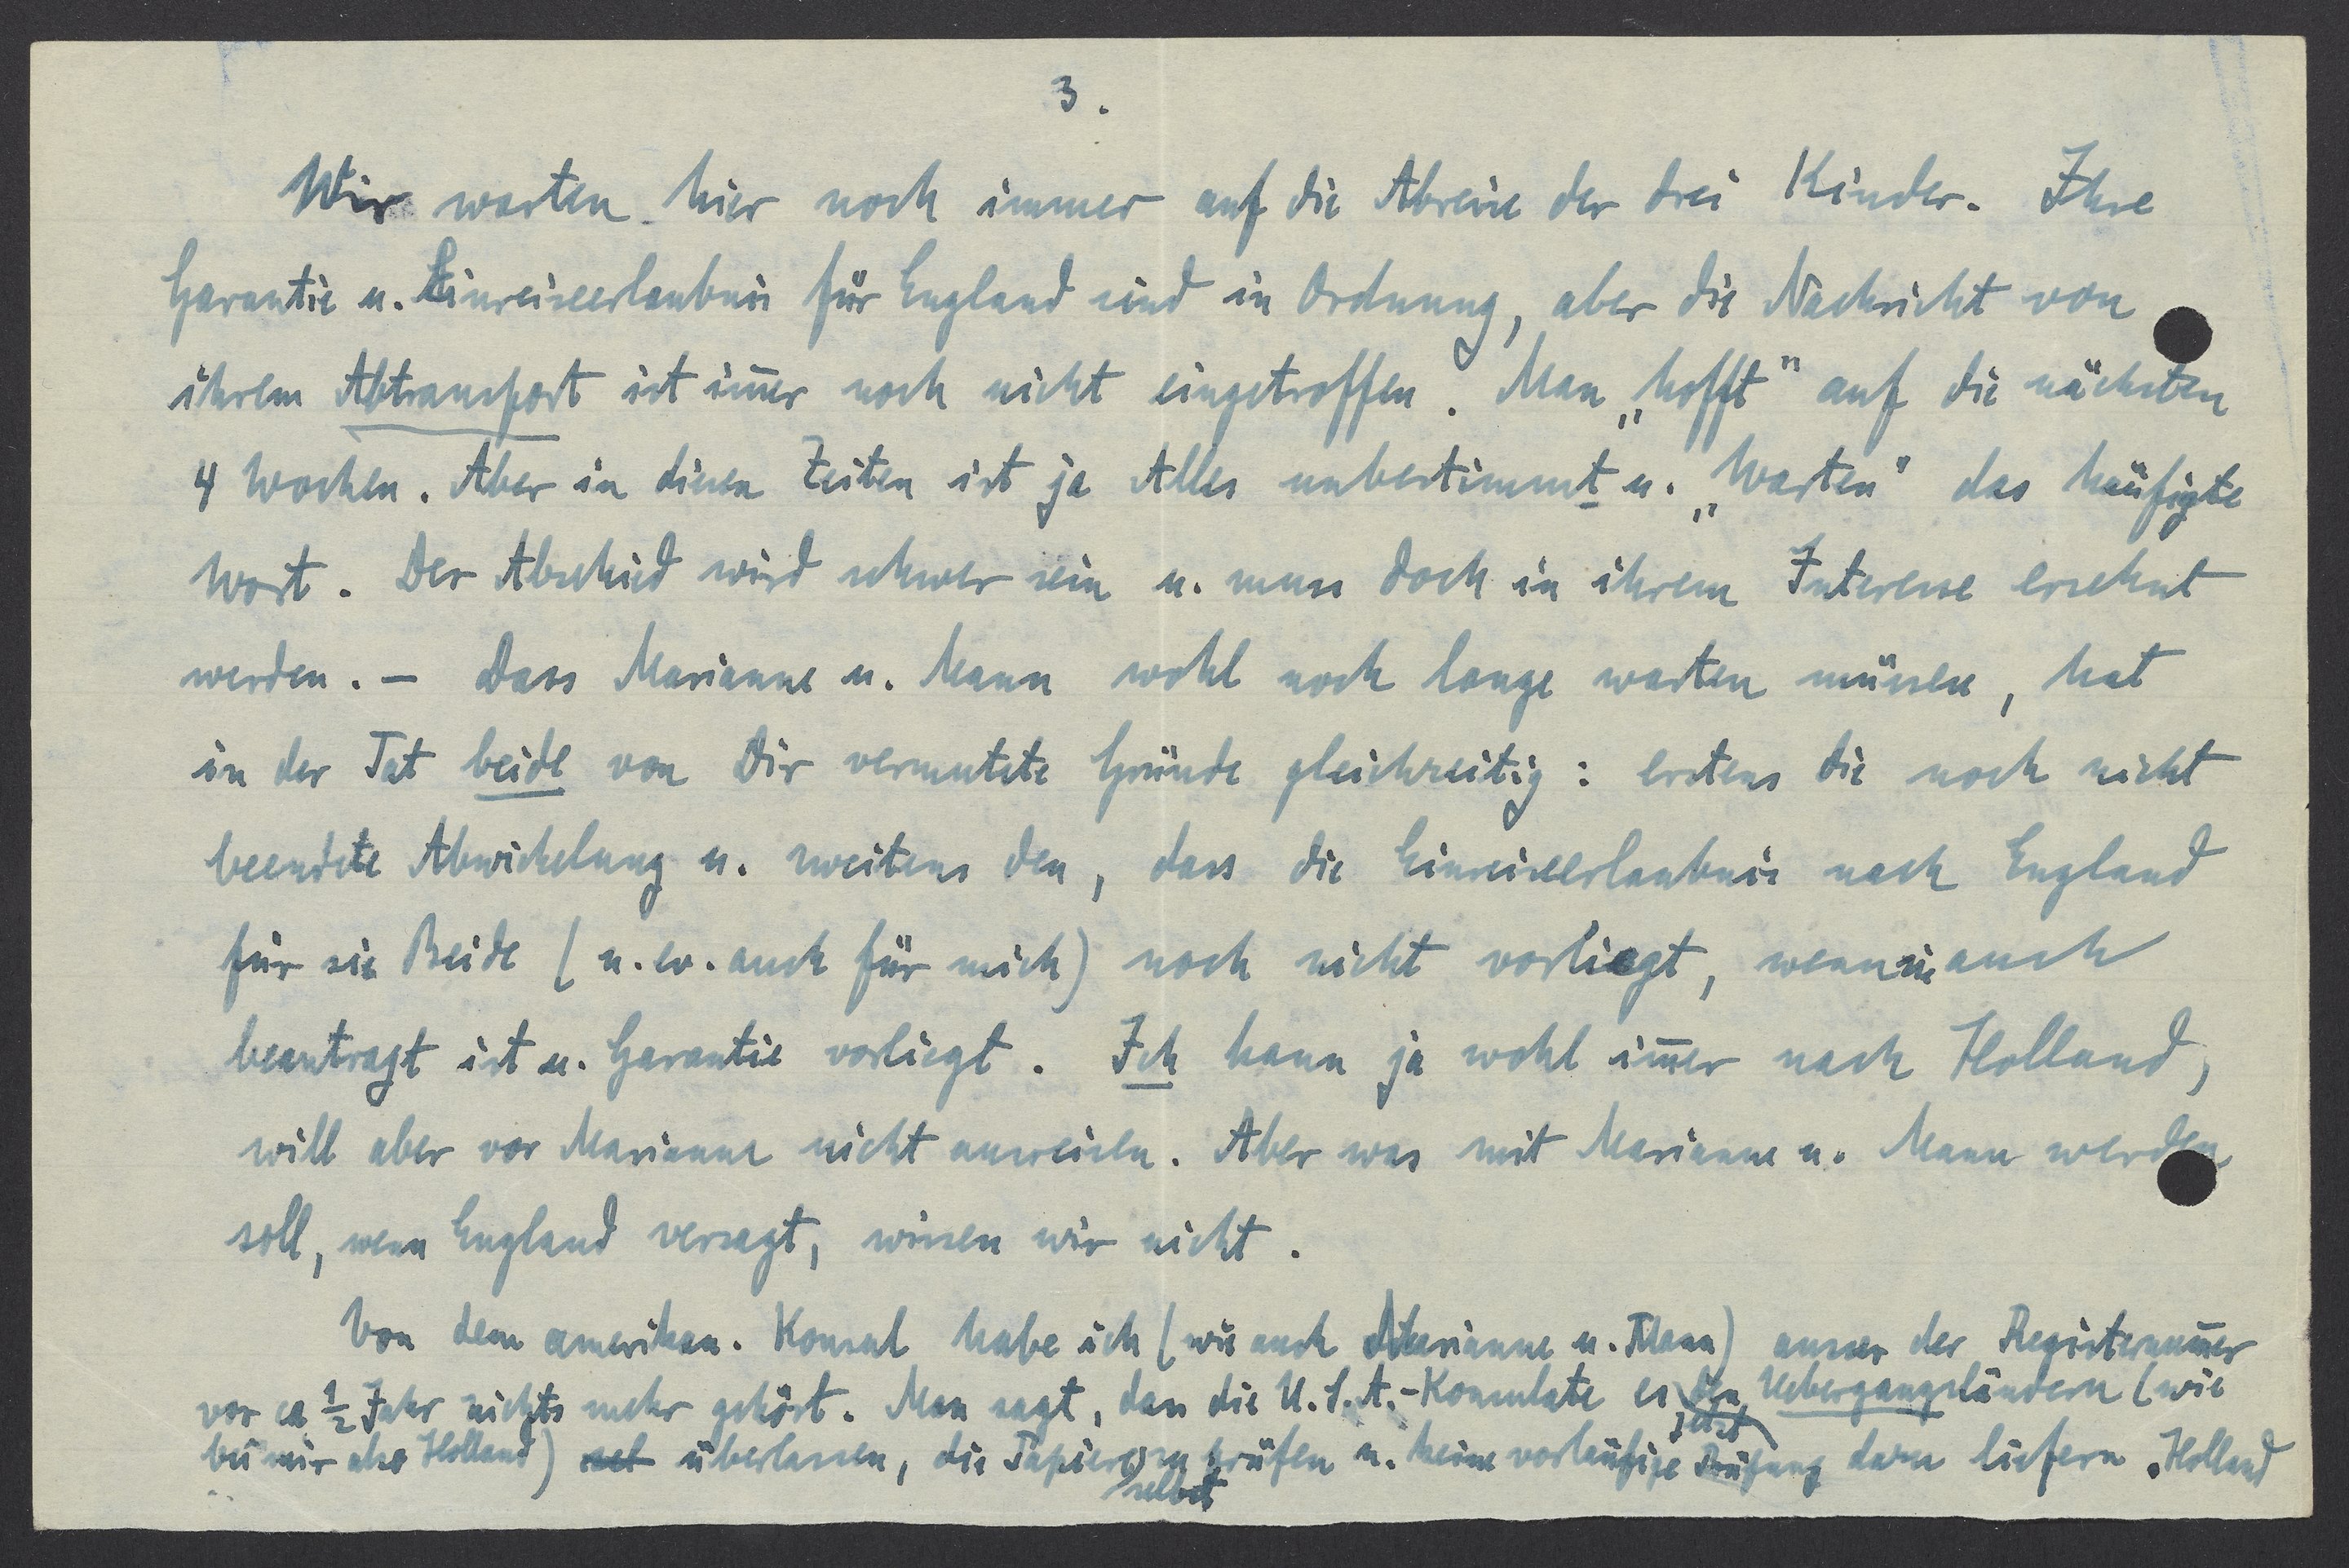 3.
Wir warten hier noch immer auf die Abreise der drei Kinder. Ihre
Garantie u. Einreiseerlaubnis für England sind in Ordnung, aber die Nachricht von
ihrem Abtransport ist im̅er noch nicht eingetroffen. Man „hofft" auf die nächsten
4 Wochen. Aber in diesen Zeiten ist ja Alles unbestimmt u. „Warten" das häufigste
Wort. Der Abschied wird schwer sein u. muss doch in ihrem Interesse ersehnt
werden. – Dass Marianne u. Mann wohl noch lange warten müssen, hat
in der Tat beide von Dir vermutete Gründe gleichzeitig: erstens die noch nicht
beendete Abwickelung u. zweitens den, dass die Einreiseerlaubnis nach England
für sie Beide (u. ev. auch für mich) noch nicht vorliegt, wenn sie auch
beantragt ist u. Garantie vorliegt. Ich kann ja wohl im̅er nach Holland,
will aber vor Marianne nicht ausreisen. Aber was mit Marianne u. Mann werden
soll, wenn England versagt, wissen wir nicht.
Von dem amerikan. Konsul habe ich (wie auch Marianne u. Mann) ausser der Registernum̅er
vor ca ½ Jahr nichts mehr gehört. Man sagt, dass die U.S.A.-Konsulate es jetzt den Uebergangsländern (wie
bei mir also Holland) überlassen, die Papiere selbst zu prüfen u. keine vorläufige Prüfung dazu liefern. Holland